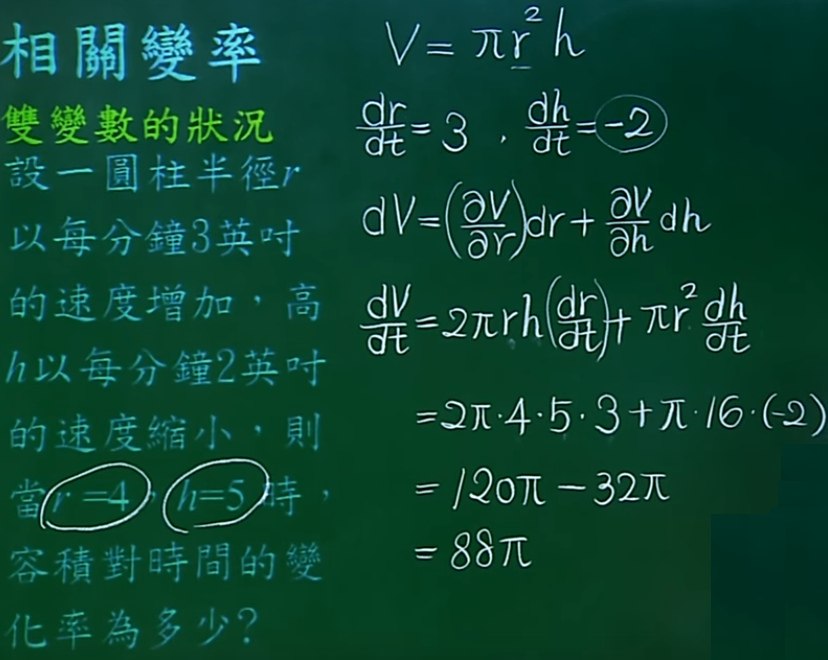 相關變率
雙變數的狀況
設一圓柱半徑r
以每分鐘3英吋
的速度增加，高
h以每分鐘2英吋
的速度縮小，則
當r=4，h=5時，
容積對時間的變
化率為多少?
V = πr²h
dr/dt = 3 , dh/dt = -2
dV = (∂V/∂r)dr + ∂V/∂h dh
dV/dt = 2πrh(dr/dt) + πr² dh/dt
= 2π·4·5·3 + π·16·(-2)
= 120π - 32π
= 88π